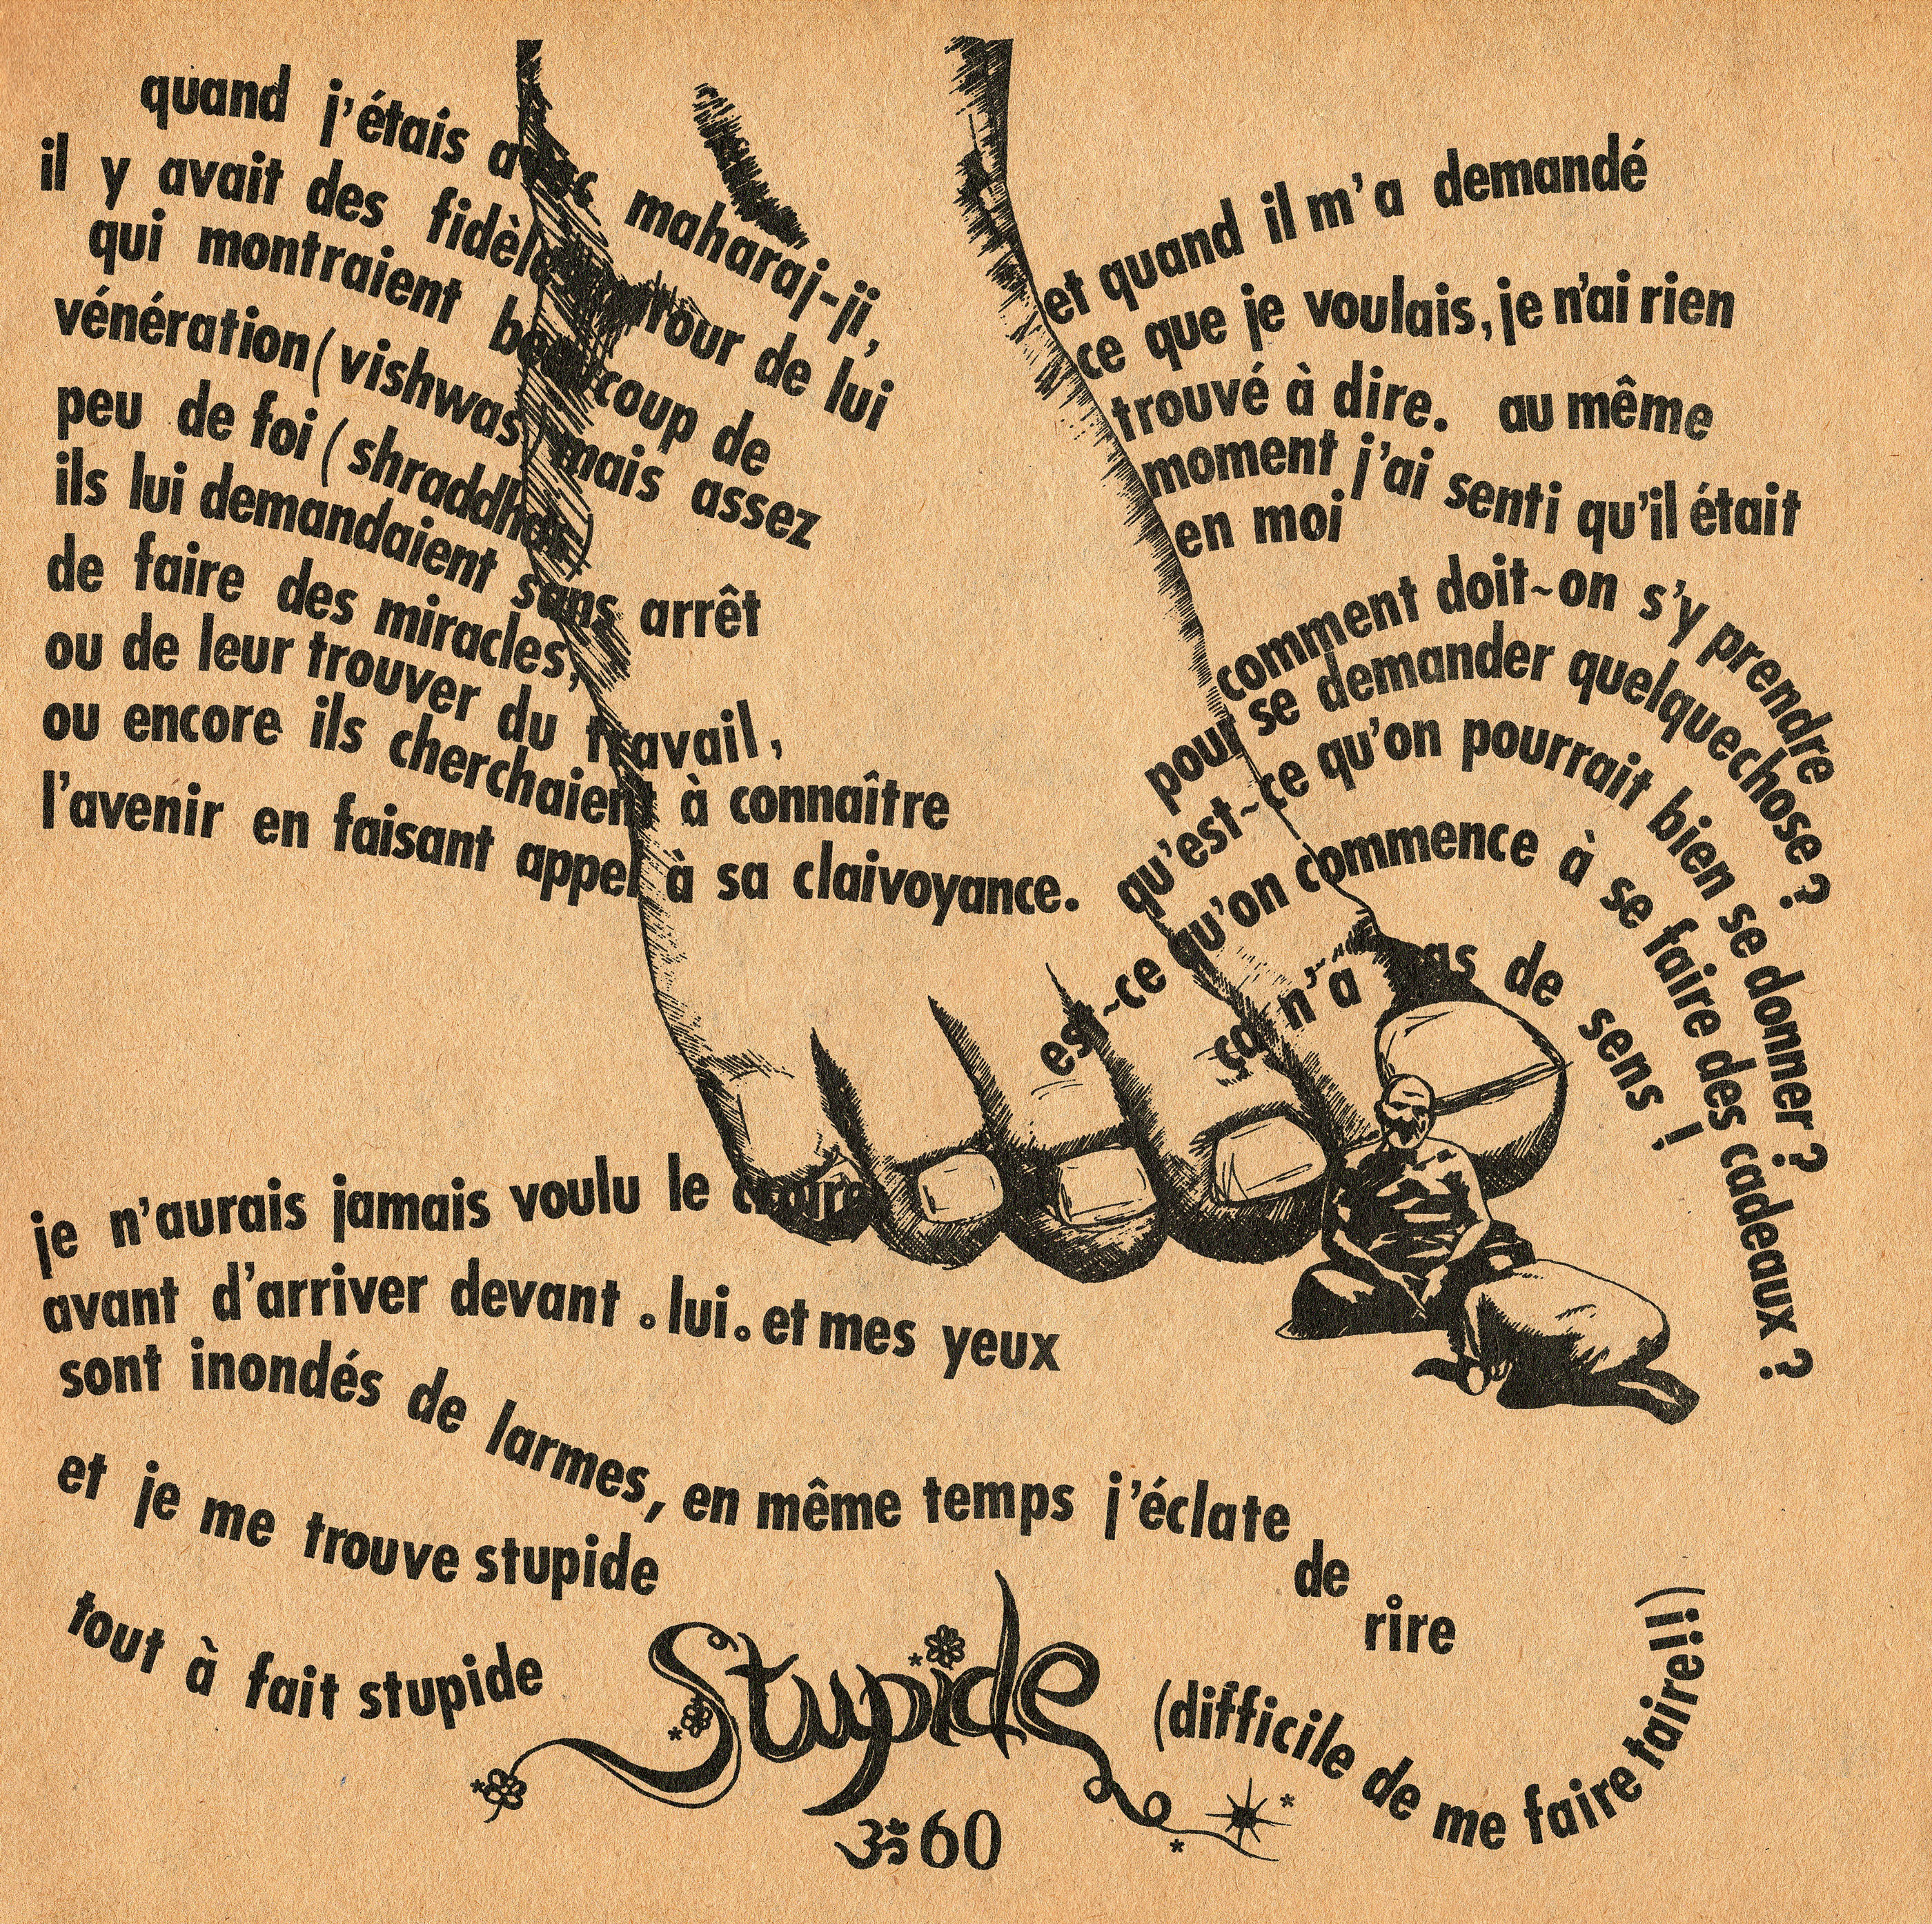 quand j'étais avec maharaj-ji,
il y avait des fidèles autour de lui
qui montraient beaucoup de
vénération (vishwas) mais assez
peu de foi (shraddha)
ils lui demandaient sans arrêt
de faire des miracles,
ou de leur trouver du travail,
ou encore ils cherchaient à connaître
l'avenir en faisant appel à sa claivoyance.
et quand il m'a demandé
ce que je voulais, je n'ai rien
trouvé à dire. au même
moment j'ai senti qu'il était
en moi
comment doit-on s'y prendre
pour se demander quelquechose ?
qu'est-ce qu'on pourrait bien se donner ?
est-ce qu'on commence à se faire des cadeaux ?
ça n'a pas de sens !
je n'aurais jamais voulu le croire
avant d'arriver devant . lui. et mes yeux
sont inondés de larmes, en même temps j'éclate
de
rire
et je me trouve stupide
tout à fait stupide
Stupide
(difficile de me faire taire!!)
ॐ60